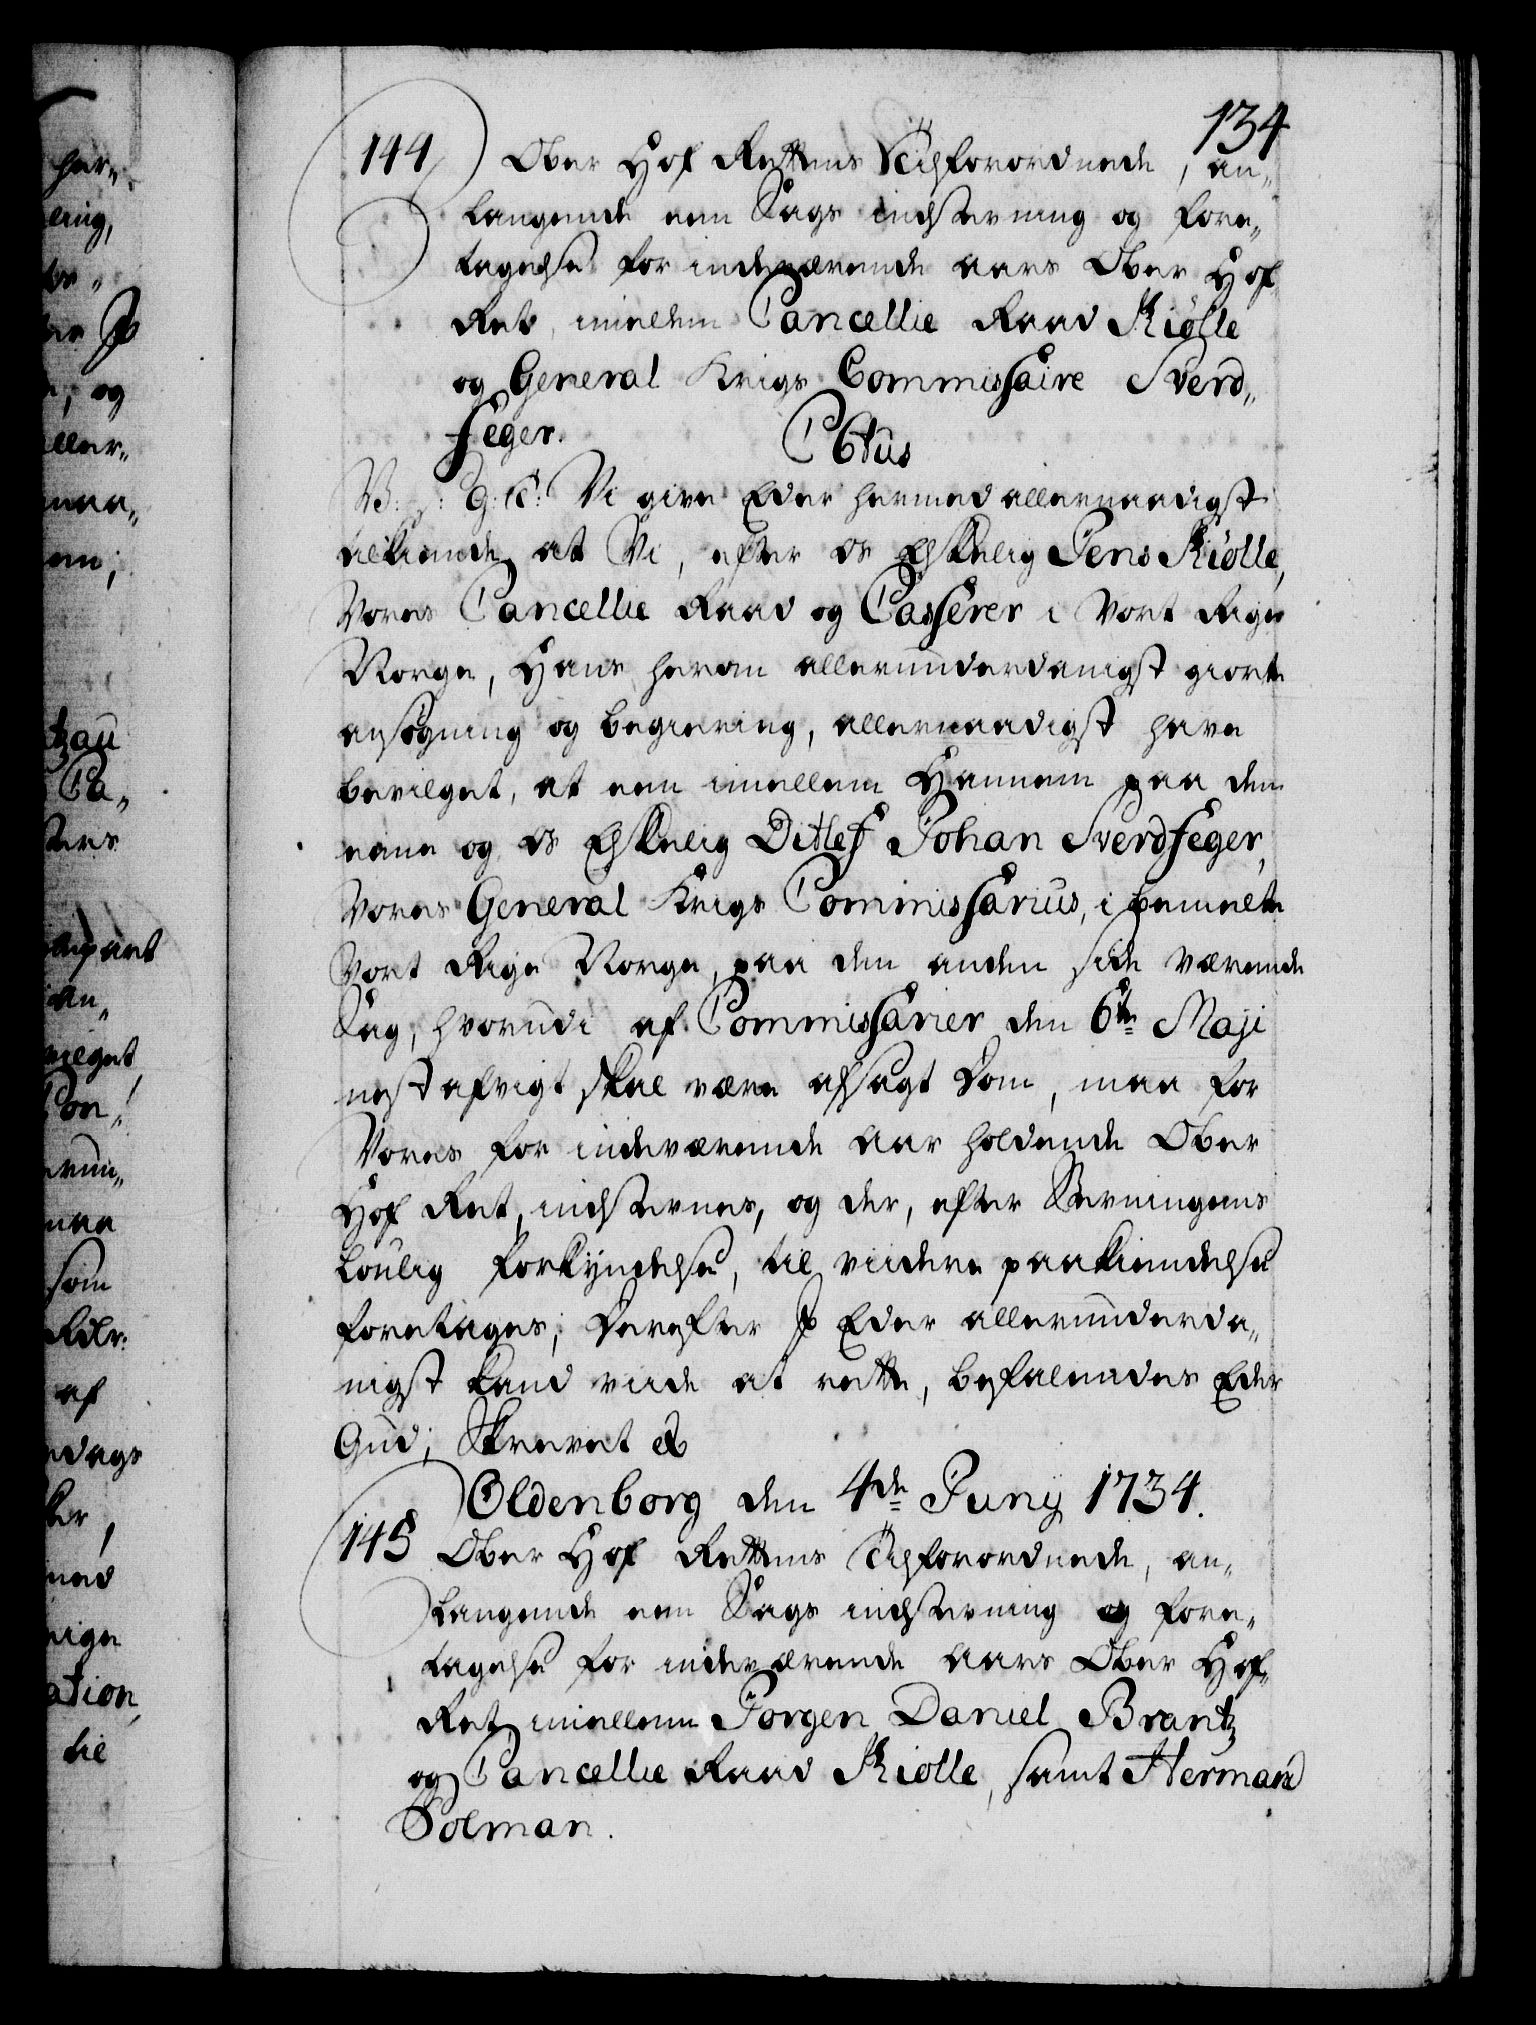 134
144 Ober Hof Rettens Tilforordnede, an-
langende een Sags indstevning og fore-
tagelse for indeværende aars Ober Hof
Ret, imellem Cancellie Raad Kiølle
og General Krigs Commissaire Sverd-
feger. C 6tus
V: G: T: Vi give Eder hermed allernaadigst
tilkiende, at Vi, efter Os Elskelig Jens Kiølle,
Vores Cancellie Raad og Casserer i Vort Rige
Norge, Hans herom allerunderdanigst giorte
ansøgning og begiering, allernaadigst have
bevilget, at een imellem Hannem paa den
eene og Os Elskelig Ditlef Johan Sverdfeger,
Vores General Krigs Commissarius, i bemelte
Vort Rige Norge, paa den anden side værende
Sag, hvorudi af Commissarier den 6te Maji
nest afvigt skal være afsagt Dom, maa for
Vores for indeværende Aar holdende Ober
Hof Ret, indstevnes, og der, efter Stevningens
Loulig forkyndelse, til viidere paakiendelse
foretages; Derefter I Eder allerunderda-
nigst kand viide at rette, befalendes Eder
Gud; Skrevet &
Oldenborg den 4de Juny 1734.
145 Ober Hof Rettens Tilforordnede, an-
langende een Sags indstevning og fore-
tagelse for indeværende Aars Ober Hof-
Ret imellem Jorgen Daniel Brantz
og Cancellie Raad Kiølle, samt Hermand
Solman.